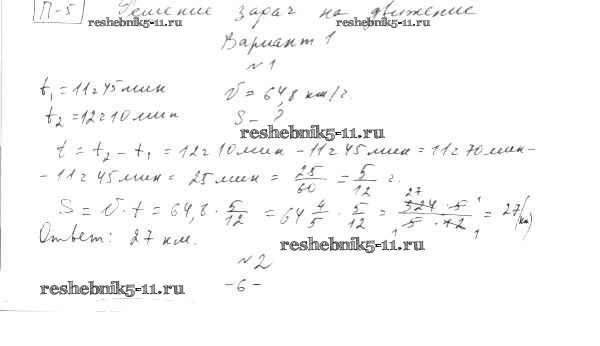 П-5 Решение задач на движение
reshebnik5-11.ru reshebnik5-11.ru
Вариант 1
№1
t₁ = 11 ч 45 мин V = 64,8 км/ч.
t₂ = 12 ч 10 мин S - ?
reshebnik5-11.ru
t = t₂ - t₁ = 12 ч 10 мин - 11 ч 45 мин = 11 ч 70 мин -
- 11 ч 45 мин = 25 мин = 25/60 = 5/12 ч.
S = V · t = 64,8 · 5/12 = 64 4/5 · 5/12 = 324 · 5 / 5 · 12 = 27 (км)
27 1
1 1
Ответ: 27 км.
reshebnik5-11.ru
№2
reshebnik5-11.ru
- 6 -